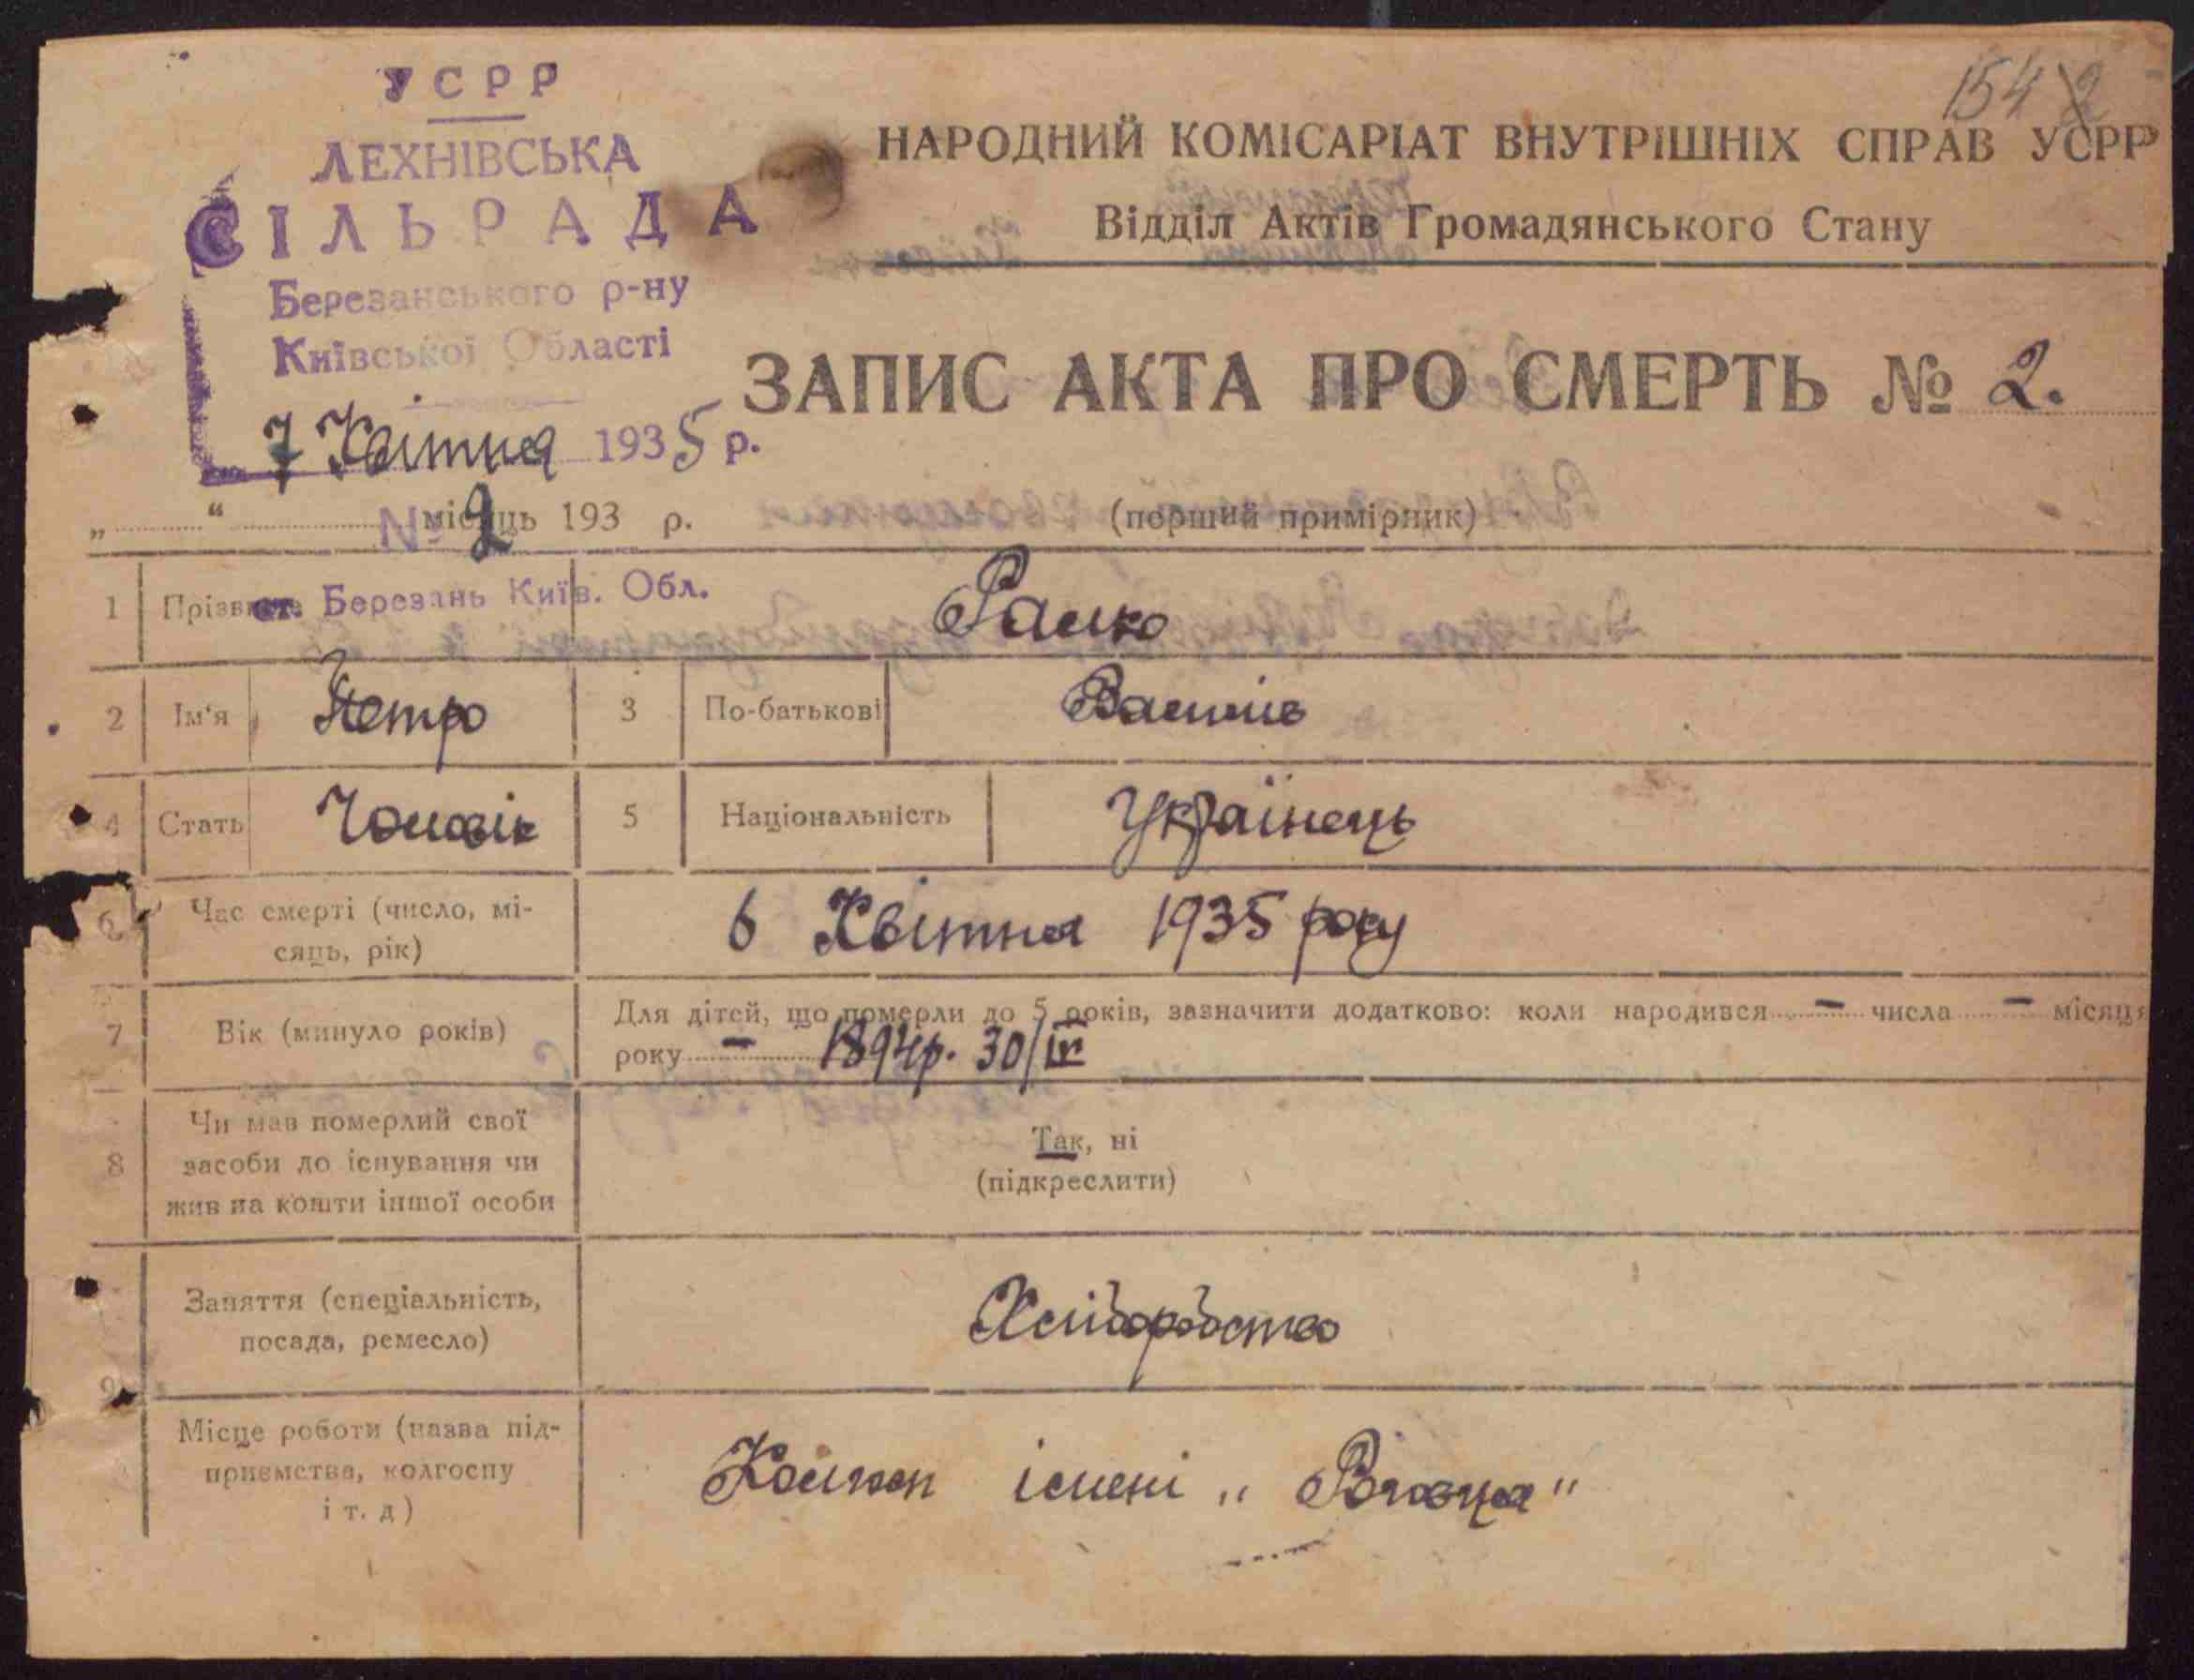 154 2
УСРР
ЛЕХНІВСЬКА
СІЛЬРАДА
Березанського р-ну
Київської Області
7 Квітня 1935 р.
№ 2
ст. Березань Київ. Обл.
НАРОДНИЙ КОМІСАРІАТ ВНУТРІШНІХ СПРАВ УСРР
Відділ Актів Громадянського Стану
ЗАПИС АКТА ПРО СМЕРТЬ № 2.
„ “ місяць 193 р.
(перший примірник)
1 Прізвище
2 Ім'я Петро 3 По-батькові
4 Стать Чоловік 5 Національність Українець
6 Час смерті (число, мі-
сяць, рік) 6 Квітня 1935 року
7 Вік (минуло років) Для дітей, що померли до 5 років, зазначити додатково: коли народився — числа — місяця
року — 1894р. 30/
8 Чи мав померлий свої
засоби до існування чи
жив на кошти іншої особи
Так, ні
(підкреслити)
9 Заняття (спеціальність,
посада, ремесло) Хліборобство
Місце роботи (назва під-
приємства, колгоспу
і т. д)
імені